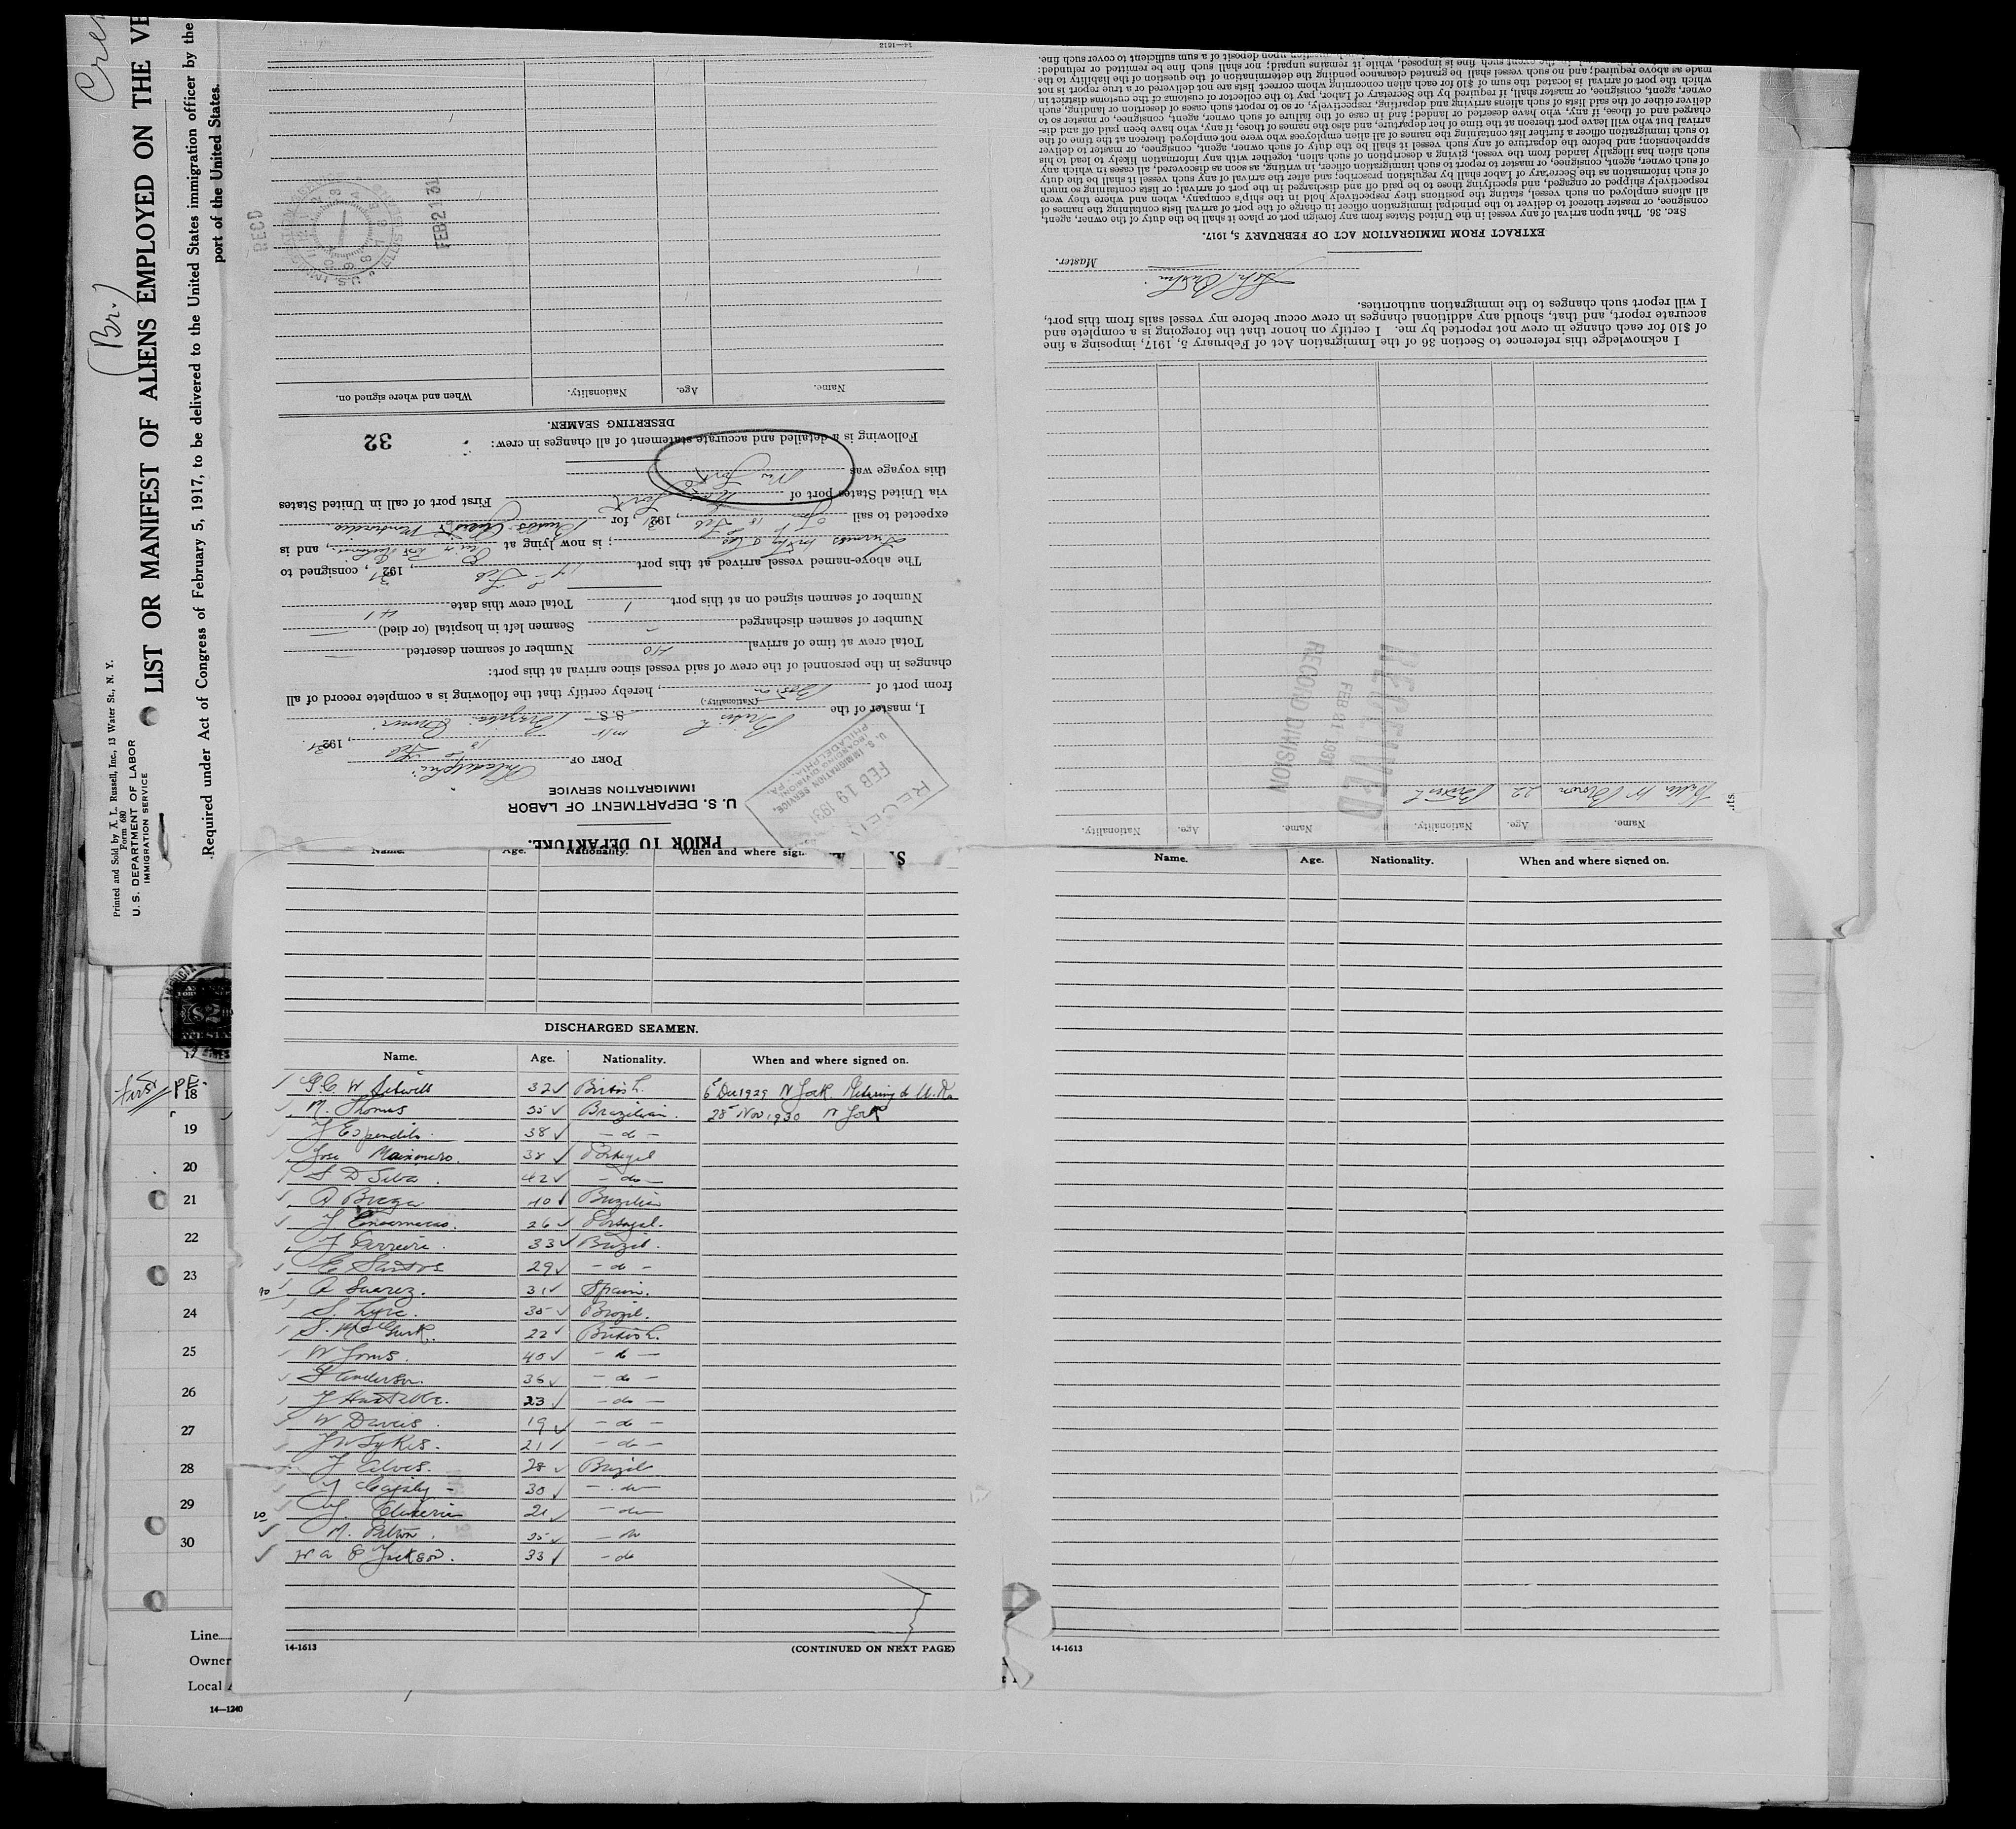 Crew
(Br.)
Printed and Sold by A. L. Russell, Inc., 13 Water St., N. Y.
Form 680
U. S. DEPARTMENT OF LABOR
IMMIGRATION SERVICE
LIST OR MANIFEST OF ALIENS EMPLOYED ON THE VE
Required under Act of Congress of February 5, 1917, to be delivered to the United States immigration officer by the
port of the United States.
PRIOR TO DEPARTURE.
U. S. DEPARTMENT OF LABOR
IMMIGRATION SERVICE
RECEI
FEB 19 1931
U. S. IMMIGRATION SERVICE,
BOARDING DIVISION,
PHILADELPHIA, PA.
PORT OF Philadelphia
18 Feb, 1931.
I, master of the British S.S. m/v Brazilian Prince
(Nationality.)
from port of Boston, hereby certify that the following is a complete record of all
changes in the personnel of the crew of said vessel since arrival at this port:
Total crew at time of arrival 40 Number of seamen deserted —
Number of seamen discharged — Seamen left in hospital (or died) —
Number of seamen signed on at this port 1 Total crew this date 41
The above-named vessel arrived at this port 17 Feb, 1931, consigned to
Furness ; is now lying at , and is
expected to sail 18 Feb, 1931, for Buenos Aires Montevideo
via United States port of New York First port of call in United States
this voyage was New York
Following is a detailed and accurate statement of all changes in crew:
32
DESERTING SEAMEN.
Name. Age. Nationality. When and where signed on.
RECD
FEB 21 31
14—1613
Name. Age. Nationality. Name. Age. Nationality.
W Brown 22 British
RECEIVED
FEB 21 1931
RECORD DIVISION
I acknowledge this reference to Section 36 of the Immigration Act of February 5, 1917, imposing a fine
of $10 for each change in crew not reported by me. I certify on honor that the foregoing is a complete and
accurate report, and that, should any additional changes in crew occur before my vessel sails from this port,
I will report such changes to the immigration authorities.
Master.
EXTRACT FROM IMMIGRATION ACT OF FEBRUARY 5, 1917.
SEC. 36. That upon arrival of any vessel in the United States from any foreign port or place it shall be the duty of the owner, agent,
consignee, or master thereof to deliver to the principal immigration officer in charge of the port of arrival lists containing the names of
all aliens employed on such vessel, stating the positions they respectively hold in the ship's company, when and where they were
respectively shipped or engaged, and specifying those to be paid off and discharged in the port of arrival; or lists containing so much
of such information as the Secretary of Labor shall by regulation prescribe; and after the arrival of any such vessel it shall be the duty
of such owner, agent, consignee, or master to report to such immigration officer, in writing, as soon as discovered, all cases in which any
such alien has illegally landed from the vessel, giving a description of such alien, together with any information likely to lead to his
apprehension; and before the departure of any such vessel it shall be the duty of such owner, agent, consignee, or master to deliver
to such immigration officer a further list containing the names of all alien employees who were not employed thereon at the time of the
arrival but who will leave port thereon at the time of her departure, and also the names of those, if any, who have been paid off and dis-
charged and of those, if any, who have deserted or landed; and in case of the failure of such owner, agent, consignee, or master so to
deliver either of the said lists of such aliens arriving and departing, respectively, or so to report such cases of desertion or landing, such
owner, agent, consignee, or master, shall, if required by the Secretary of Labor, pay to the collector of customs of the customs district in
which the port of arrival is located the sum of $10 for each alien concerning whom correct lists are not delivered or a true report is not
made as above required; and no such vessel shall be granted clearance pending the determination of the question of the liability to the
event such fine is imposed, while it remains unpaid; nor shall such fine be remitted or refunded:
upon deposit of a sum sufficient to cover such fine.
Name. Age. Nationality. When and where sign
DISCHARGED SEAMEN.
Name. Age. Nationality. When and where signed on.
G. C W 32 British 6 Dec 1929 N York. Returning to U.K.
M. Thomas 35 Brazilian. 28 Nov 1930 N York
J Espendito 38 — do —
Jose 38 Portugal
S D Silva 42 — do —
A Braga 40 Brazilian
J Encarnacao. 26 Portugal.
J Ferreira. 33 Brazil.
C Santos 29 — do —
10 A Suarez. 31 Spain.
S. Lyra. 35 Brazil.
S. McGurk. 22 British.
W Jones. 40 — do —
S Anderson. 36 — do —
J 23 — do —
W Davis. 19 — do —
J W Sykes. 21 — do —
J Alves. 28 Brazil
J 30 — do —
20 J. 21 — do —
M. 35 — do
W a P Jackson. 33 — do
14-1613
(CONTINUED ON NEXT PAGE)
Name. Age. Nationality. When and where signed on.
14-1613
first
17
18
19
20
21
22
23
24
25
26
27
28
29
30
Line
Owner
Local
14—1240